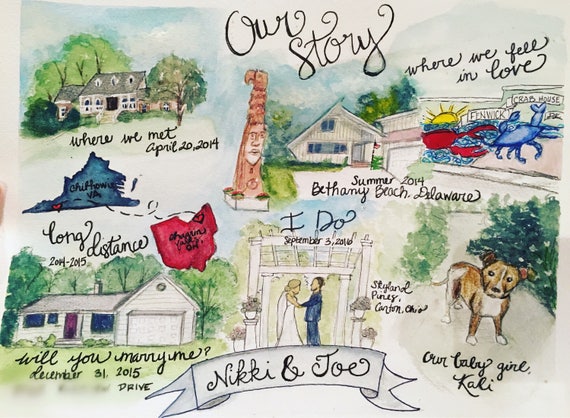 Our
Story
where we met
April 20, 2014
where we fell
in love
FENWICK
CRAB HOUSE
Summer 2014
Bethany Beach, Delaware
Chilhowie,
VA
long
distance
2014-2015
I Do
September 3, 2016
will you marry me?
december 31, 2015
DRIVE
Nikki & Joe
Our baby girl,
Kali